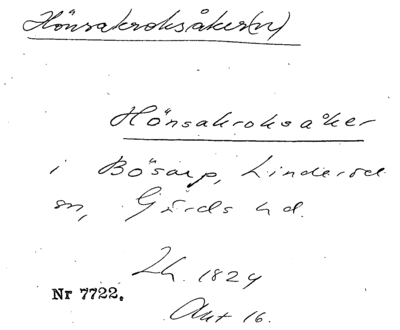 Hönsakroksåker(n)
Hönsakroksåker
i Bösarp, Linderöd
sn, Gärds hd.
Lh. 1824
Nr 7722.
Akt 16.